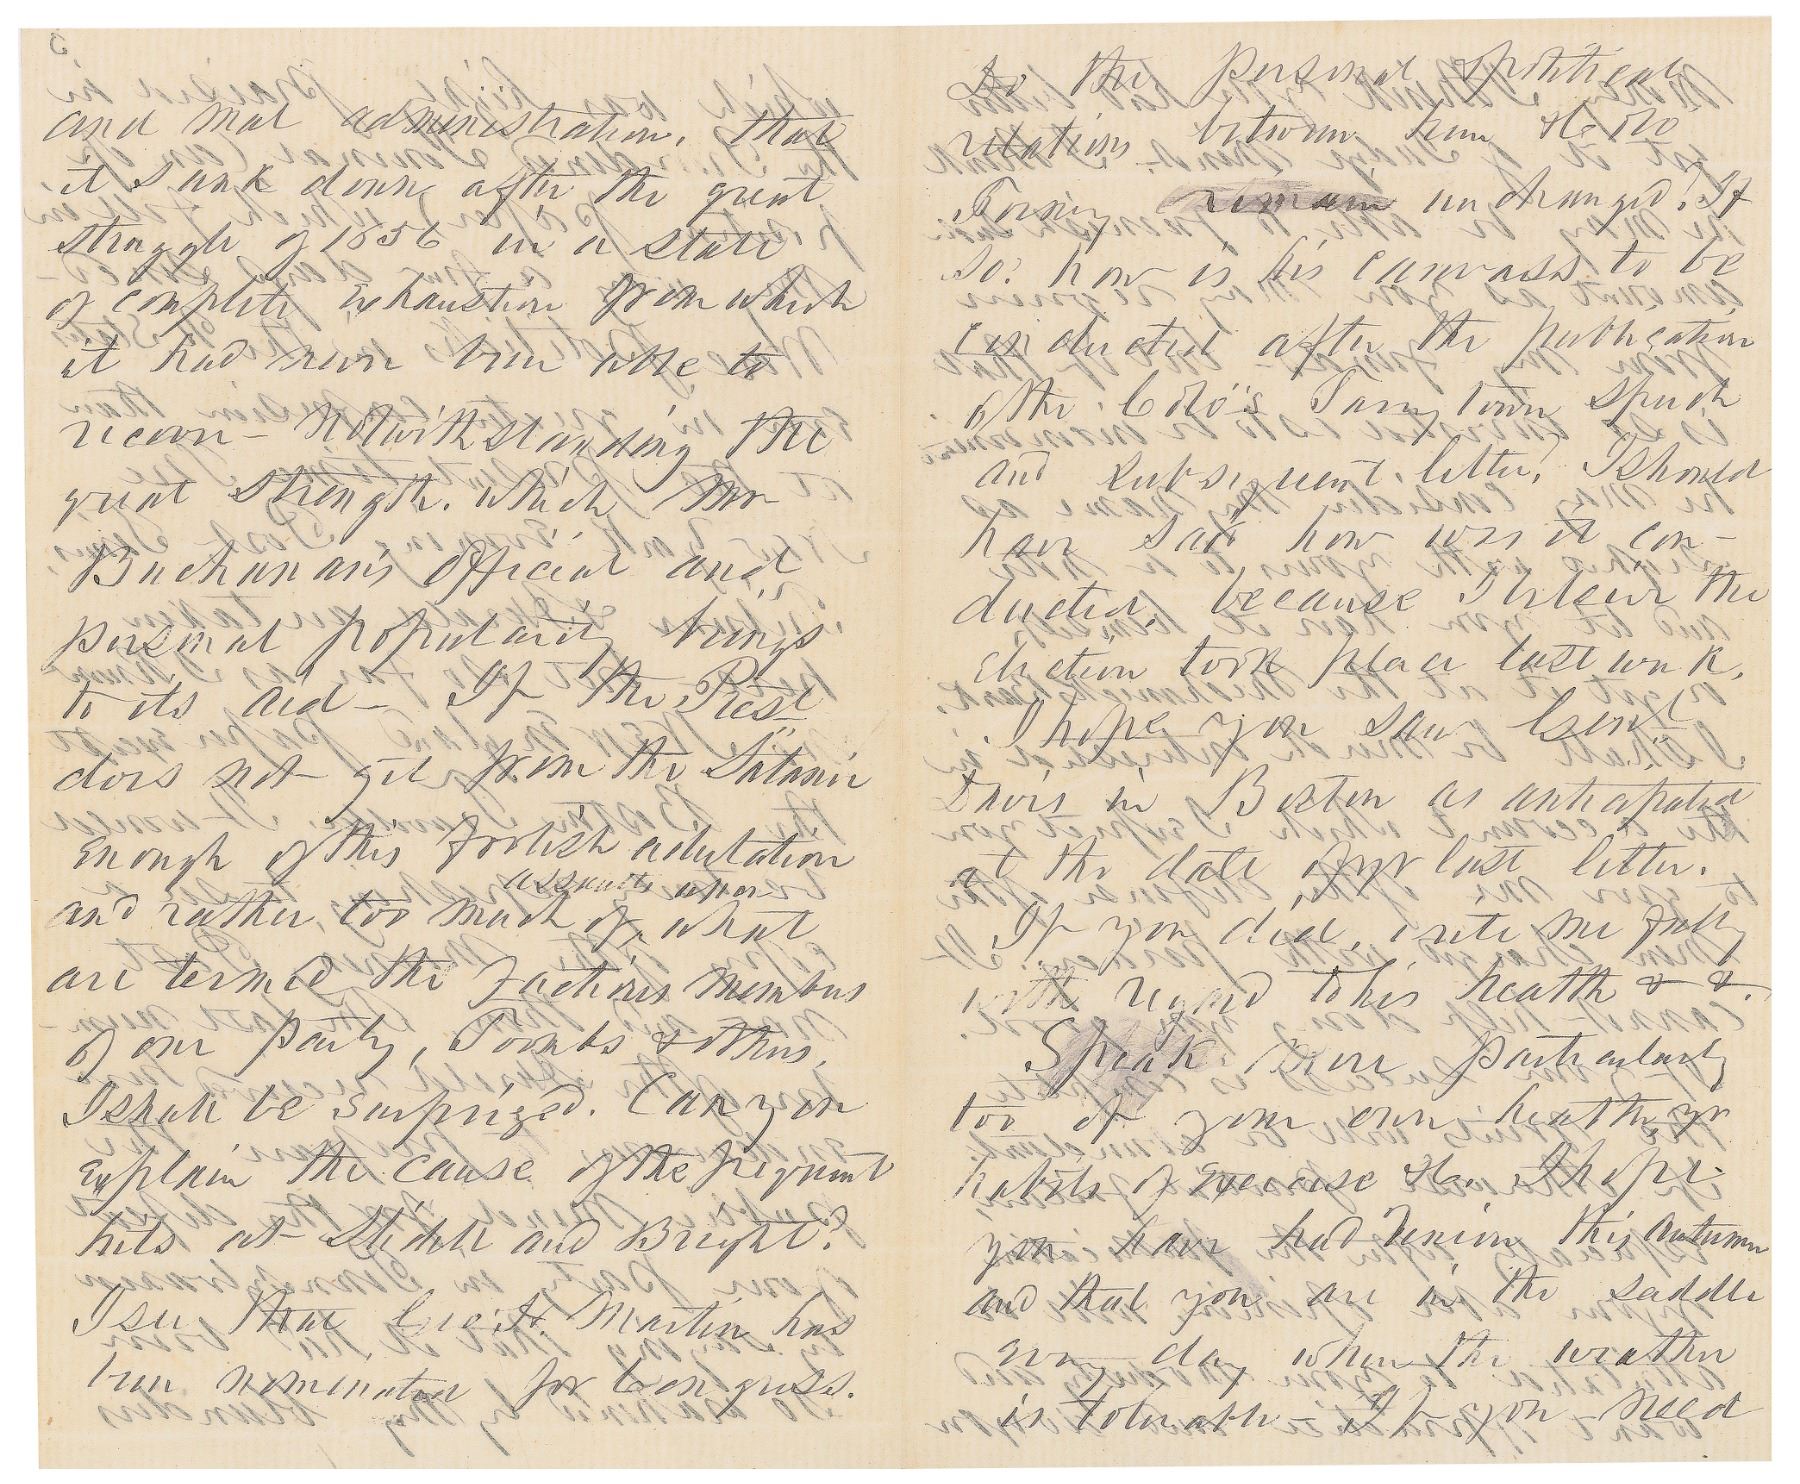 and mal administration, that
it sank down after the great
struggle of 1856 in a state
of complete exhaustion from which
it had never been able to
recover - Notwithstanding the
great strength. which Mr
Buchanan's official and
personal popularity brings
to its aid - If the Prest
does not get from the Satanic
enough of this foolish adulation
and rather, too much of assaults upon what
are termed the factious members
of our Party, Toombs & others,
I shall be surprized. Can you
explain the cause of the frequent
hits at Slidell and Bright?
I see that Geo. H. Martin has
been nominated for Congress.
Do the personal & political
relations between him & Colo
Forney remain unchanged? If
so: how is his canvass to be
conducted after the publication
of the Colo's Tarrytown speech
and subsequent letter? I should
have said how was it con-
ducted, because I believe the
election took place last week.
I hope you saw Genl
Davis in Boston as anticipated
at the date of yr last letter.
If you did, write me fully
with regard to his health & &.
Speak more particularly
too of your own health, yr
habits of exercise &c. I hope
you have had Venison this Autumn
and that you are in the saddle
every day when the weather
is tolerable - if you need